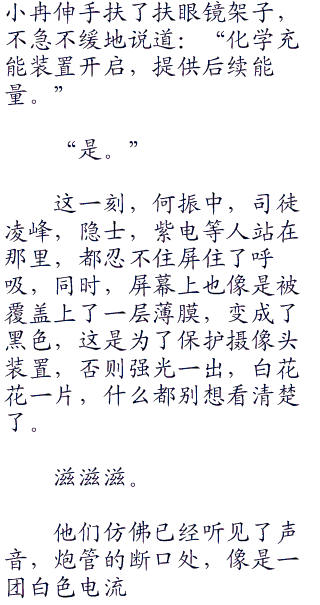 小冉伸手扶了扶眼镜架子，
不急不缓地说道：“化学充
能装置开启，提供后续能
量。”
“是。”
这一刻，何振中，司徒
凌峰，隐士，紫电等人站在
那里，都忍不住屏住了呼
吸，同时，屏幕上也像是被
覆盖上了一层薄膜，变成了
黑色，这是为了保护摄像头
装置，否则强光一出，白花
花一片，什么都别想看清楚
了。
滋滋滋。
他们仿佛已经听见了声
音，炮管的断口处，像是一
团白色电流